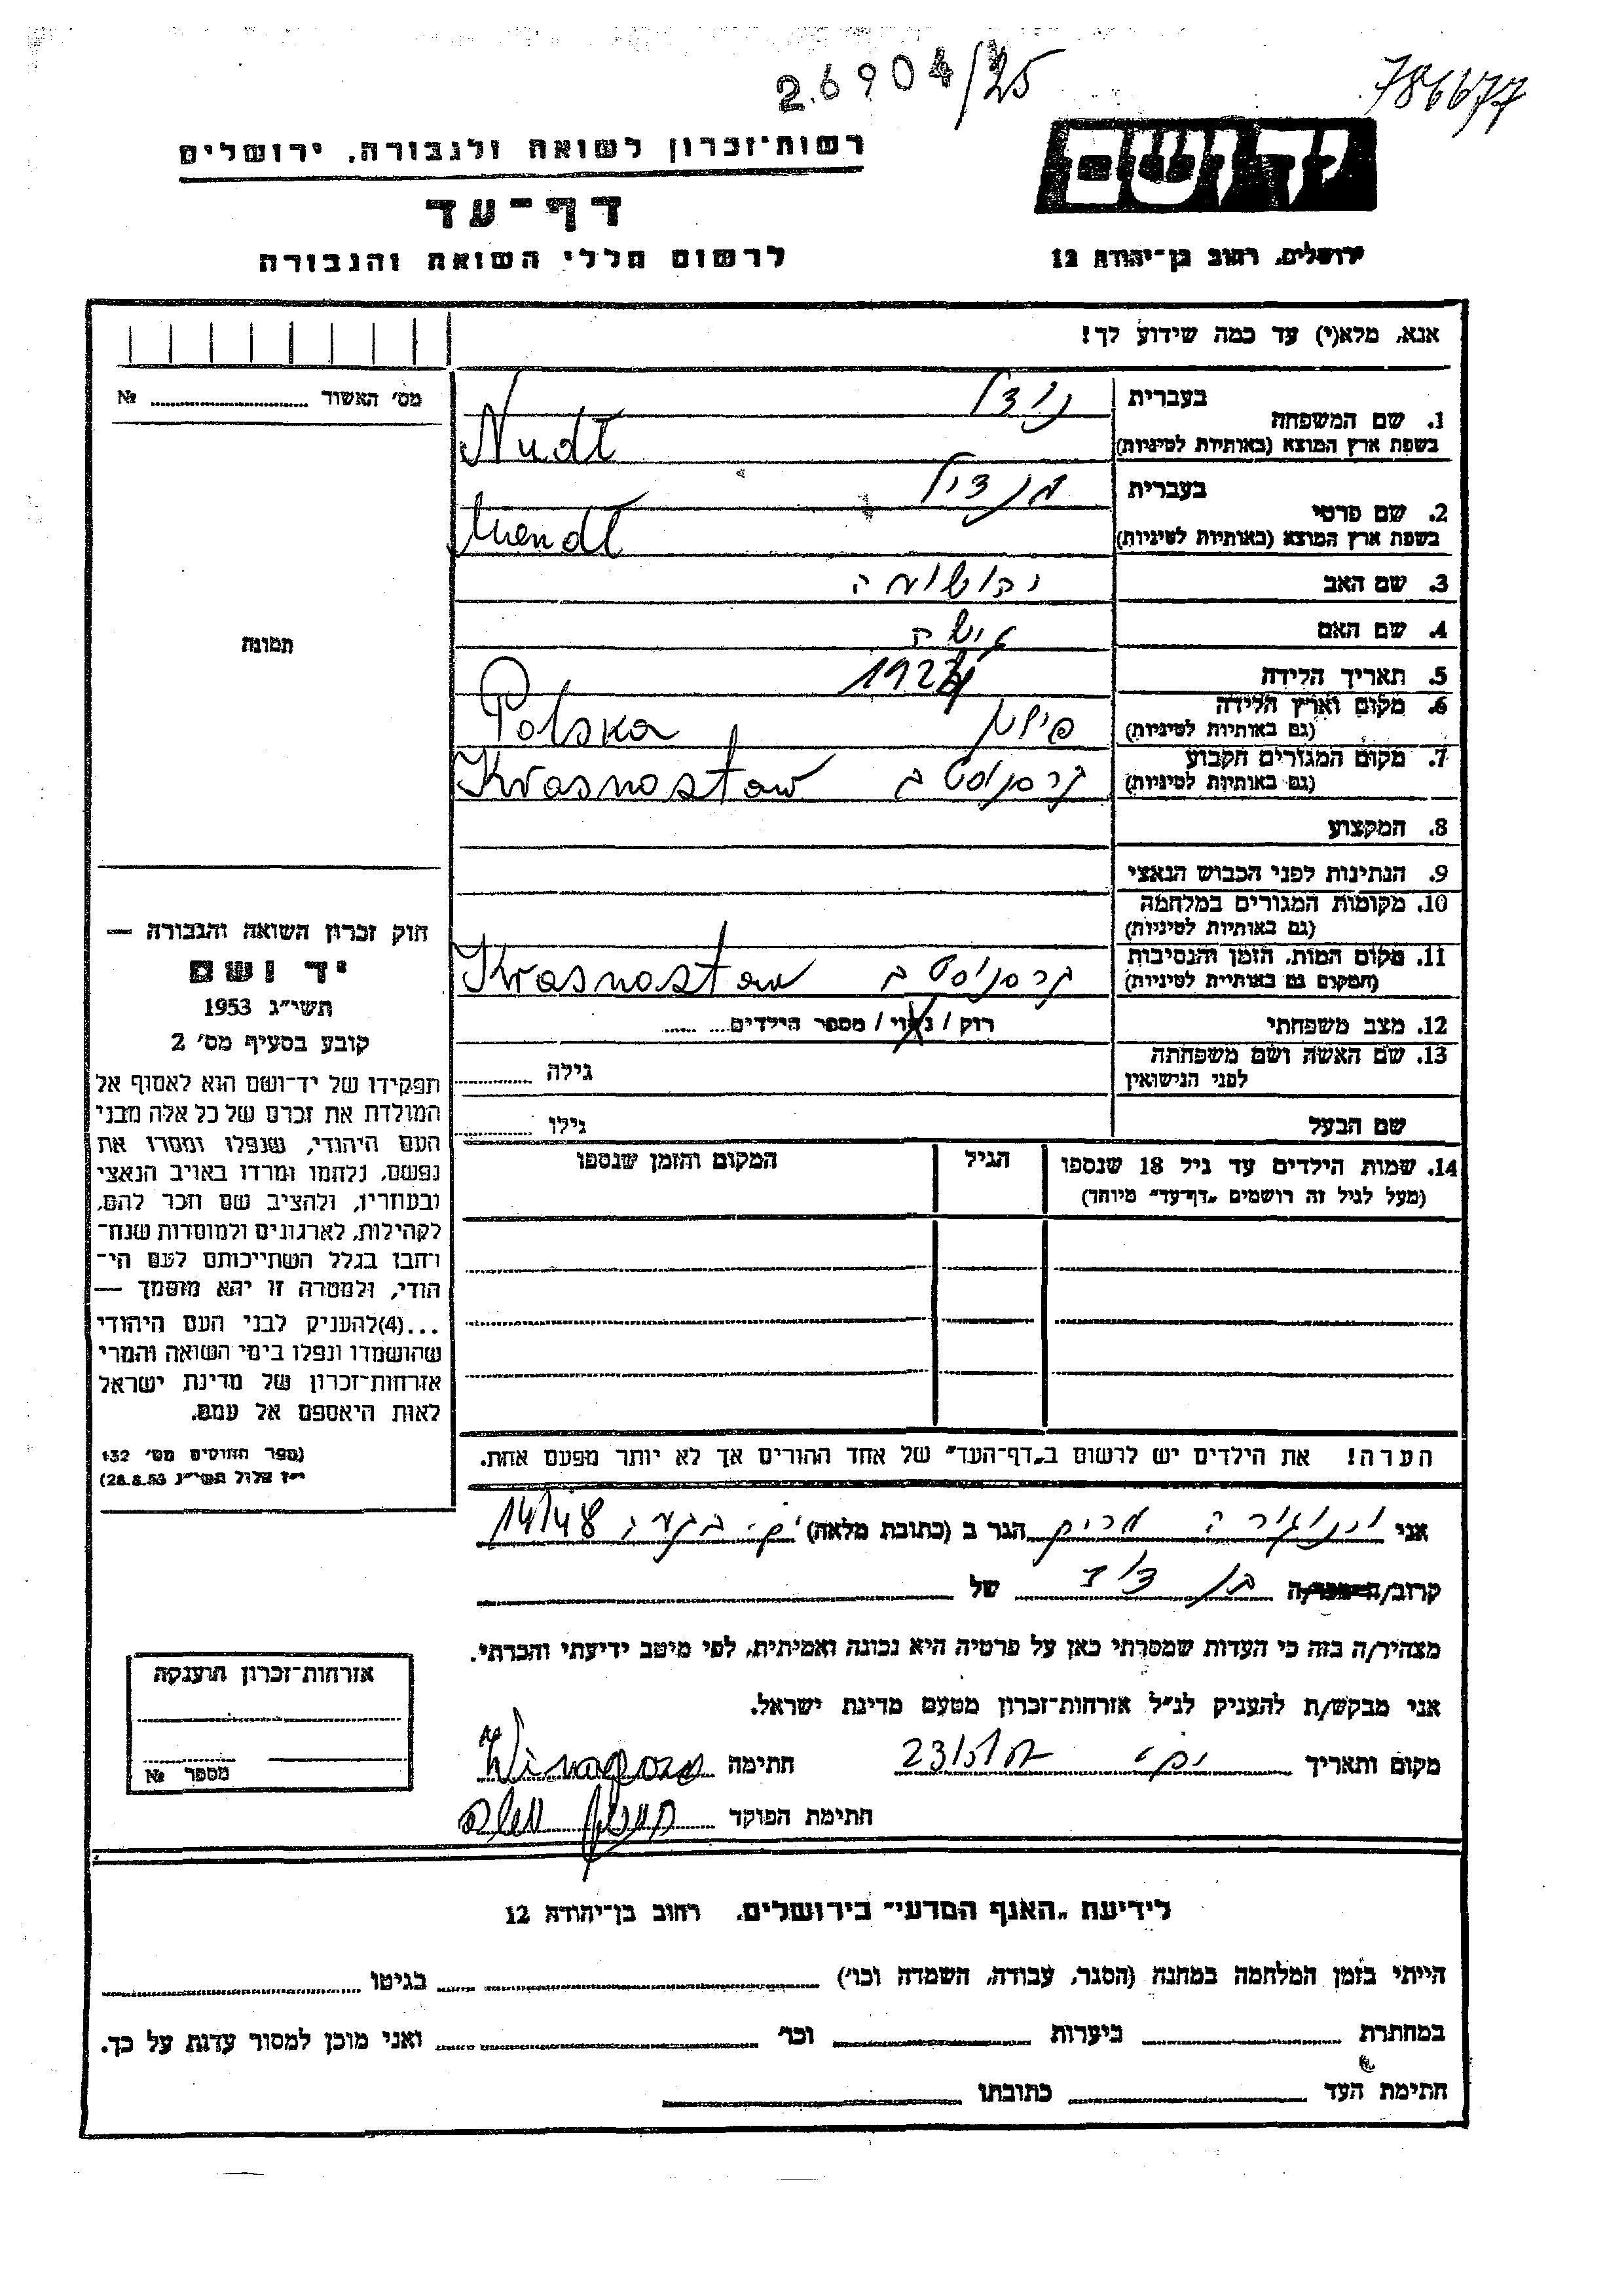 26904/25
786677
יד ושם
רשות־זכרון לשואה ולגבורה, ירושלים
דף־עד
ירושלים, רחוב בן־יהודה 12
לרשום חללי השואה והגבורה
אנא, מלא(י) עד כמה שידוע לך!
מס' האשור № ........
תמונה
1. שם המשפחה בעברית נודל
בשפת ארץ המוצא (באותיות לטיניות) Nudł
2. שם פרטי בעברית מנדיל
בשפת ארץ המוצא (באותיות לטיניות) Mendł
3. שם האב יהושועה
4. שם האם
5. תאריך הלידה
6. מקום וארץ הלידה (גם באותיות לטיניות) פולין Polska
7. מקום המגורים הקבוע (גם באותיות לטיניות) קרסנוסטב Krasnostaw
8. המקצוע
9. הנתינות לפני הכבוש הנאצי
10. מקומות המגורים במלחמה (גם באותיות לטיניות)
11. מקום המות, הזמן והנסיבות (המקום גם באותיות לטיניות) קרסנוסטב Krasnostaw
12. מצב משפחתי רוק / נשוי / מספר הילדים........
13. שם האשה ושם משפחתה לפני הנישואין גילה ........
שם הבעל גילו ........
14. שמות הילדים עד גיל 18 שנספו (מעל לגיל זה רושמים „דף־עד” מיוחד)
הגיל
המקום והזמן שנספו
הערה! את הילדים יש לרשום ב„דף־העד” של אחד ההורים אך לא יותר מפעם אחת.
חוק זכרון השואה והגבורה —
יד ושם
תשי"ג 1953
קובע בסעיף מס' 2
תפקידו של יד־ושם הוא לאסוף אל
המולדת את זכרם של כל אלה מבני
העם היהודי, שנפלו ומסרו את
נפשם, נלחמו ומרדו באויב הנאצי
ובעוזריו, ולהציב שם וזכר להם,
לקהילות, לארגונים ולמוסדות שנח־
רחבו בגלל השתייכותם לעם הי־
הודי, ולמטרה זו יהא מוסמך —
...(4)להעניק לבני העם היהודי
שהושמדו ונפלו בימי השואה והמרי
אזרחות־זכרון של מדינת ישראל
לאות היאספם אל עמם.
(ספר החוקים מס' 132
י"ז אלול תשי"ג 28.8.53)
אני וינוגורה מרים הגר ב (כתובת מלאה) 14/48
קרוב/ה מכר/ה בן דוד של
מצהיר/ה בזה כי העדות שמסרתי כאן על פרטיה היא נכונה ואמיתית, לפי מיטב ידיעתי והכרתי.
אני מבקש/ת להעניק לנ"ל אזרחות־זכרון מטעם מדינת ישראל.
מקום ותאריך חתימה
חתימת הפוקד
אזרחות־זכרון הוענקה
מספר №
לידיעת „האגף המדעי” בירושלים, רחוב בן־יהודה 12
הייתי בזמן המלחמה במחנה (הסגר, עבודה, השמדה וכו') ........ בגיטו ........
במחתרת ........ ביערות ........ וכו' ........ ואני מוכן למסור עדות על כך.
חתימת העד ........ כתובתו ........